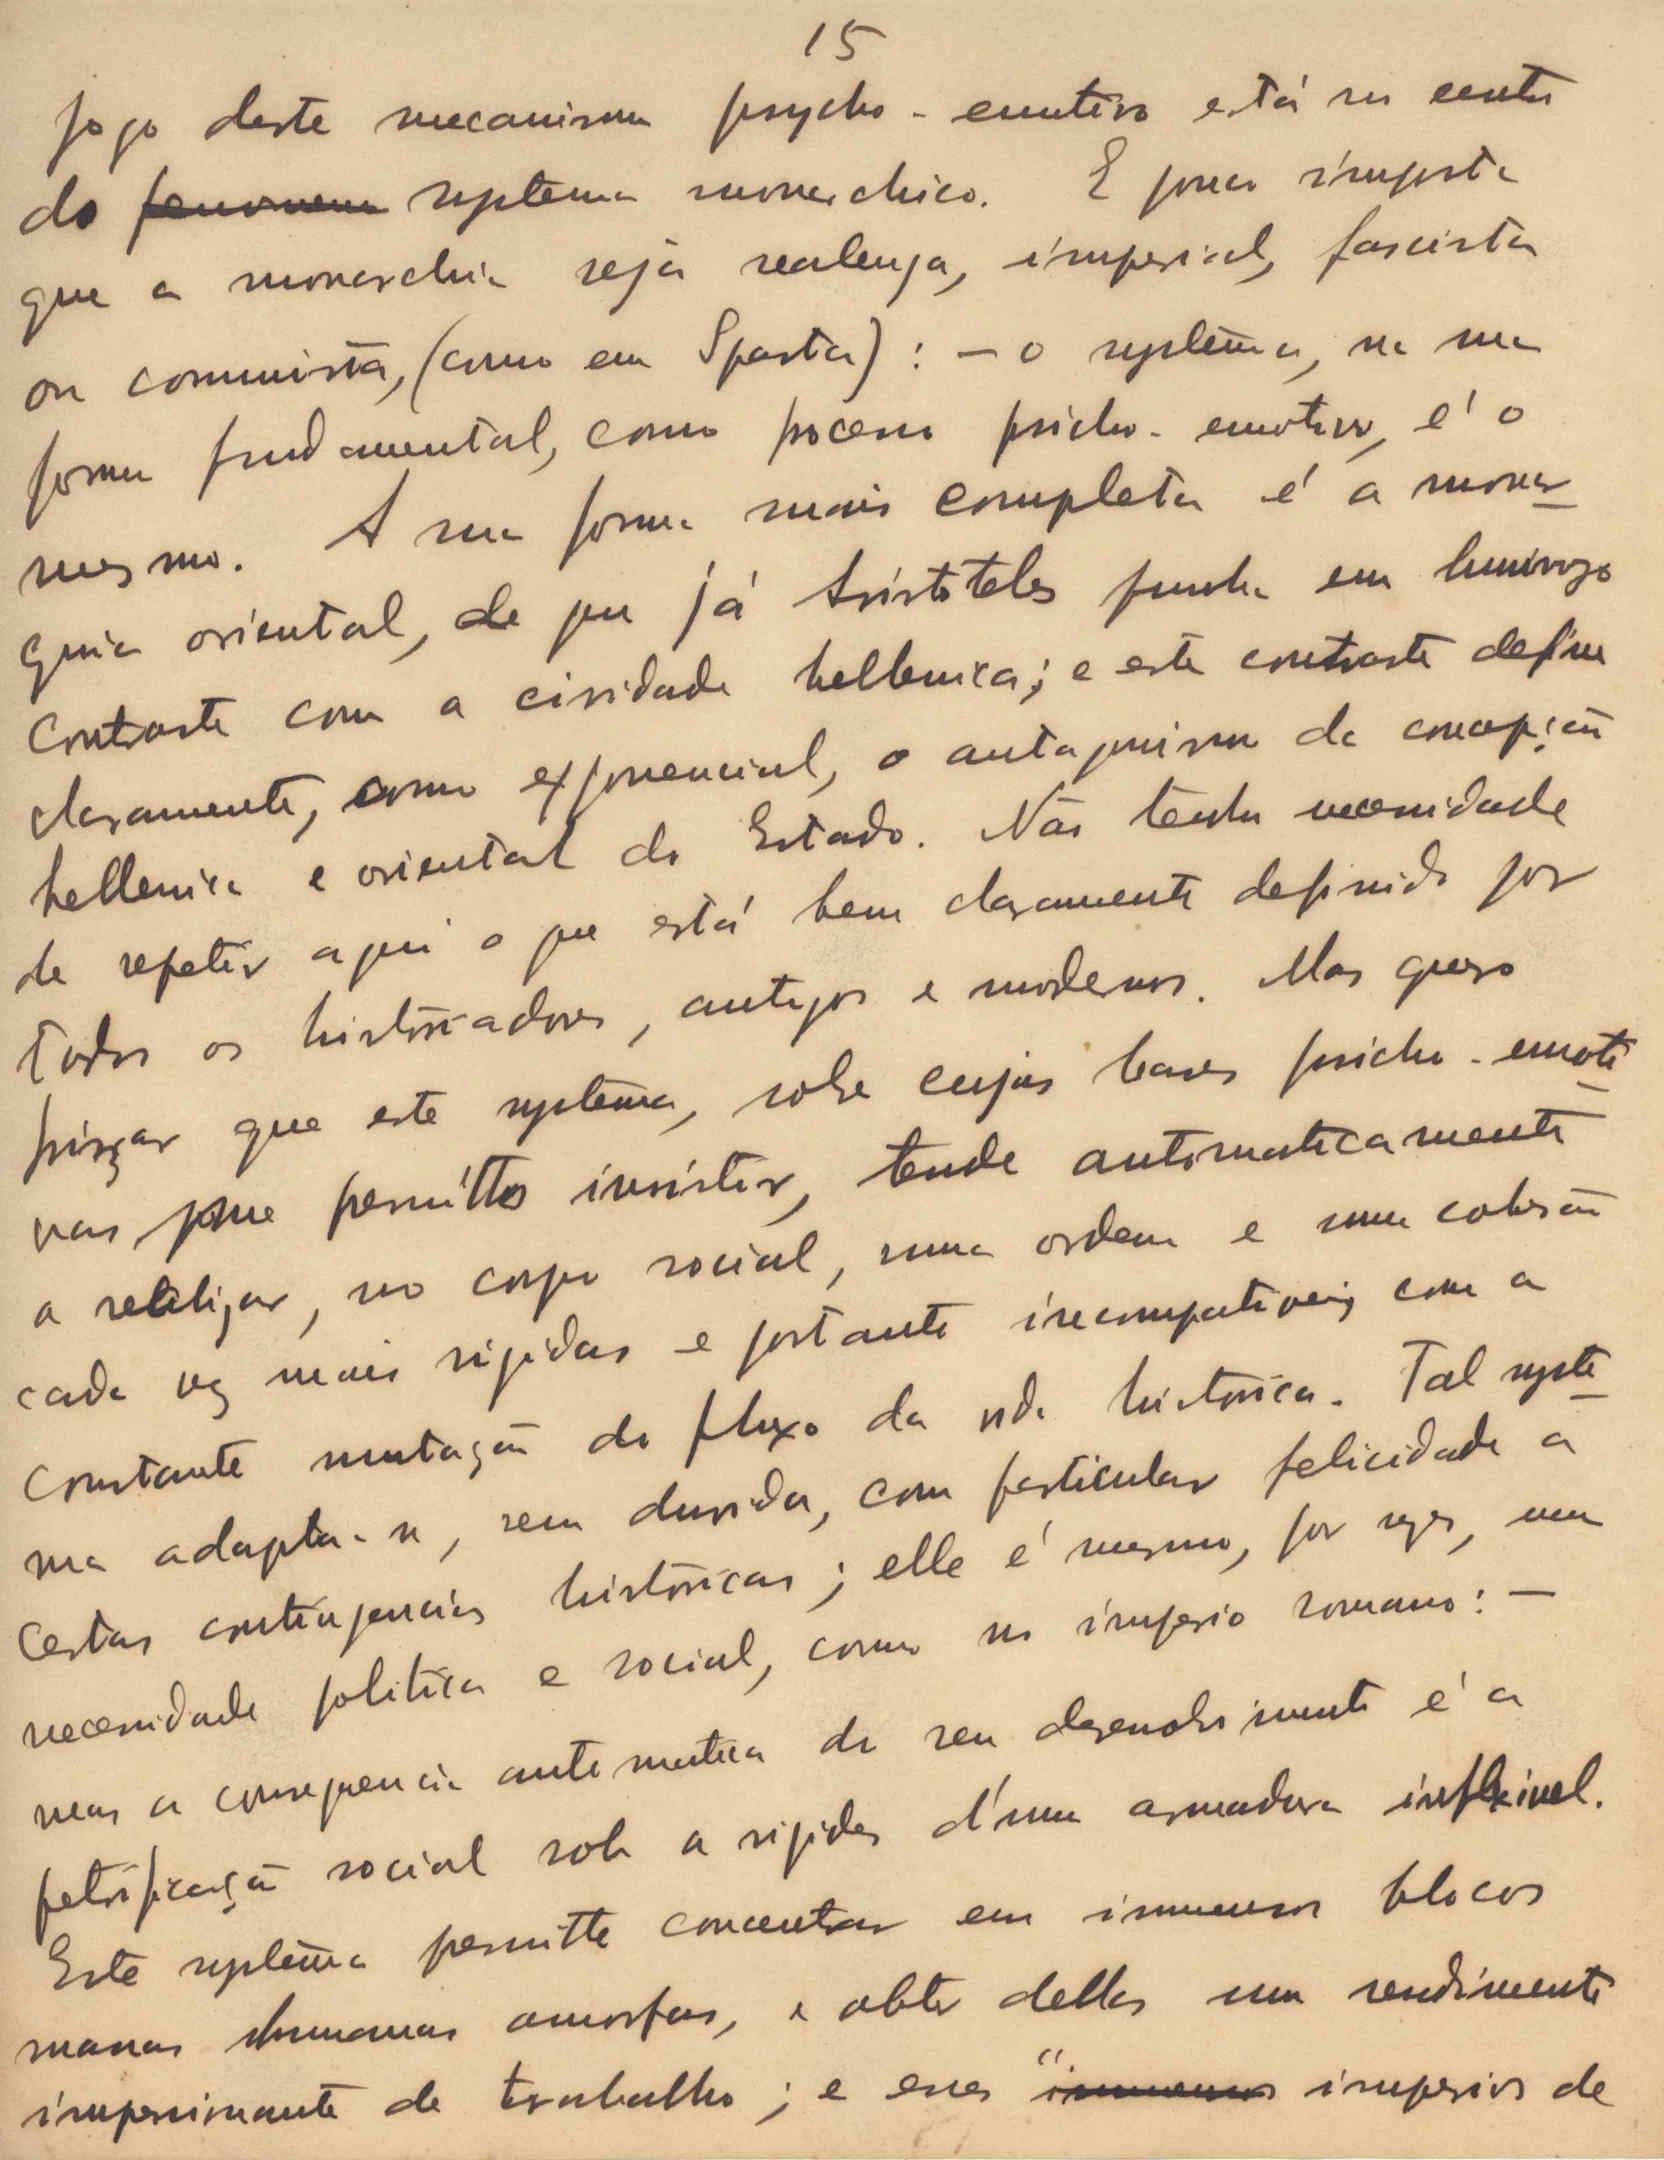 15
jogo deste mecanismo psycho-emotivo está no centro
do fenomeno systema monarchico. E pouco importa
que a monarchia seja realenga, imperial, fascista
ou communista, (como em Sparta): — o systema, na sua
forma fundamental, como processo psicho-emotivo, é o
mesmo. A sua forma mais completa é a monar-
quia oriental, de que já Aristoteles punha em luminoso
contraste com a cividade hellenica; e este contraste define
claramente, como exponencial, o antagonismo da concepção
hellenica e oriental do Estado. Não tenho necessidade
de repetir aqui o que está bem claramente definido por
todos os historiadores, antigos e modernos. Mas quero
frizar que este systema, sobre cujas bases psicho-emoti-
vas me permitto insistir, tende automaticamente
a realizar, no corpo social, uma ordem e uma cohesão
cada vez mais rigidas e portanto incompativeis com a
constante mutação do fluxo da vida historica. Tal syste-
ma adapta-se, sem duvida, com particular felicidade a
certas contingencias historicas; elle é mesmo, por vezes, uma
necessidade politica e social, como no imperio romano: —
mas a consequencia automatica do seu desenvolvimento é a
petrificação social sob a rigidez d'uma armadura inflexivel.
Este systema permitte concentrar em immensos blocos
massas humanas amorfas, e obter dellas um rendimento
impressionante de trabalho; e esses "immensos imperios de